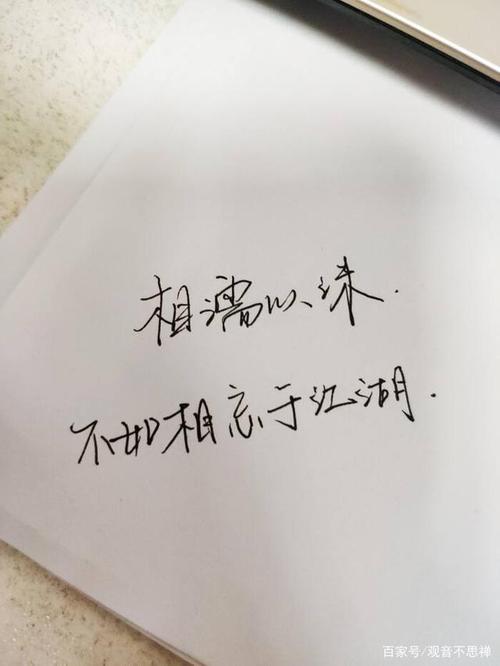 相濡以沫.
不如相忘于江湖.
百家号/观音不思禅